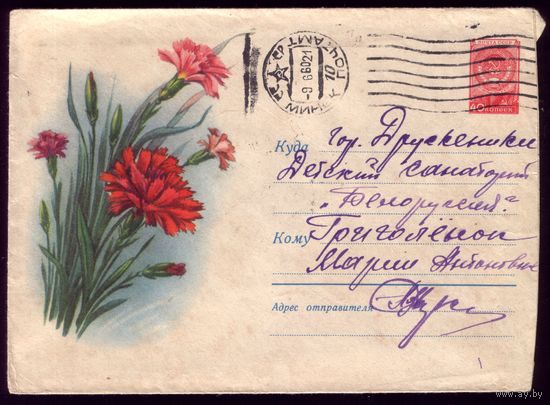 ПОЧТА СССР
40 КОПЕЕК
МИНСК ПОЧТАМТ
-9 6 6021
10
Куда гор. Друскеники
Детский санаторий
„Белоруссия“
Кому Григолёнок
Марии Антоновне
Адрес отправителя
www.ay.by